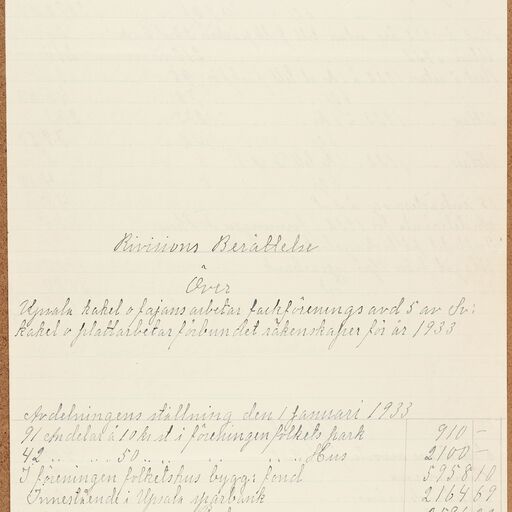 Rivisions Berättelse
Över
Upsala kakel o fajans arbetar fackförenings avd 5 av Sv:
kakel o plattarbetarförbundet räkenskaper för år 1933
Avdelningens ställning den 1 Januari 1933
91 Andelar á 10 kr st i föreningen folkets park 910 -
42 .. .. 50 .. .. .. .. .. Hus 2100 -
I föreningen folketshus bygg: fond 5958 10
Innestående i Upsala sparbank 2164 69